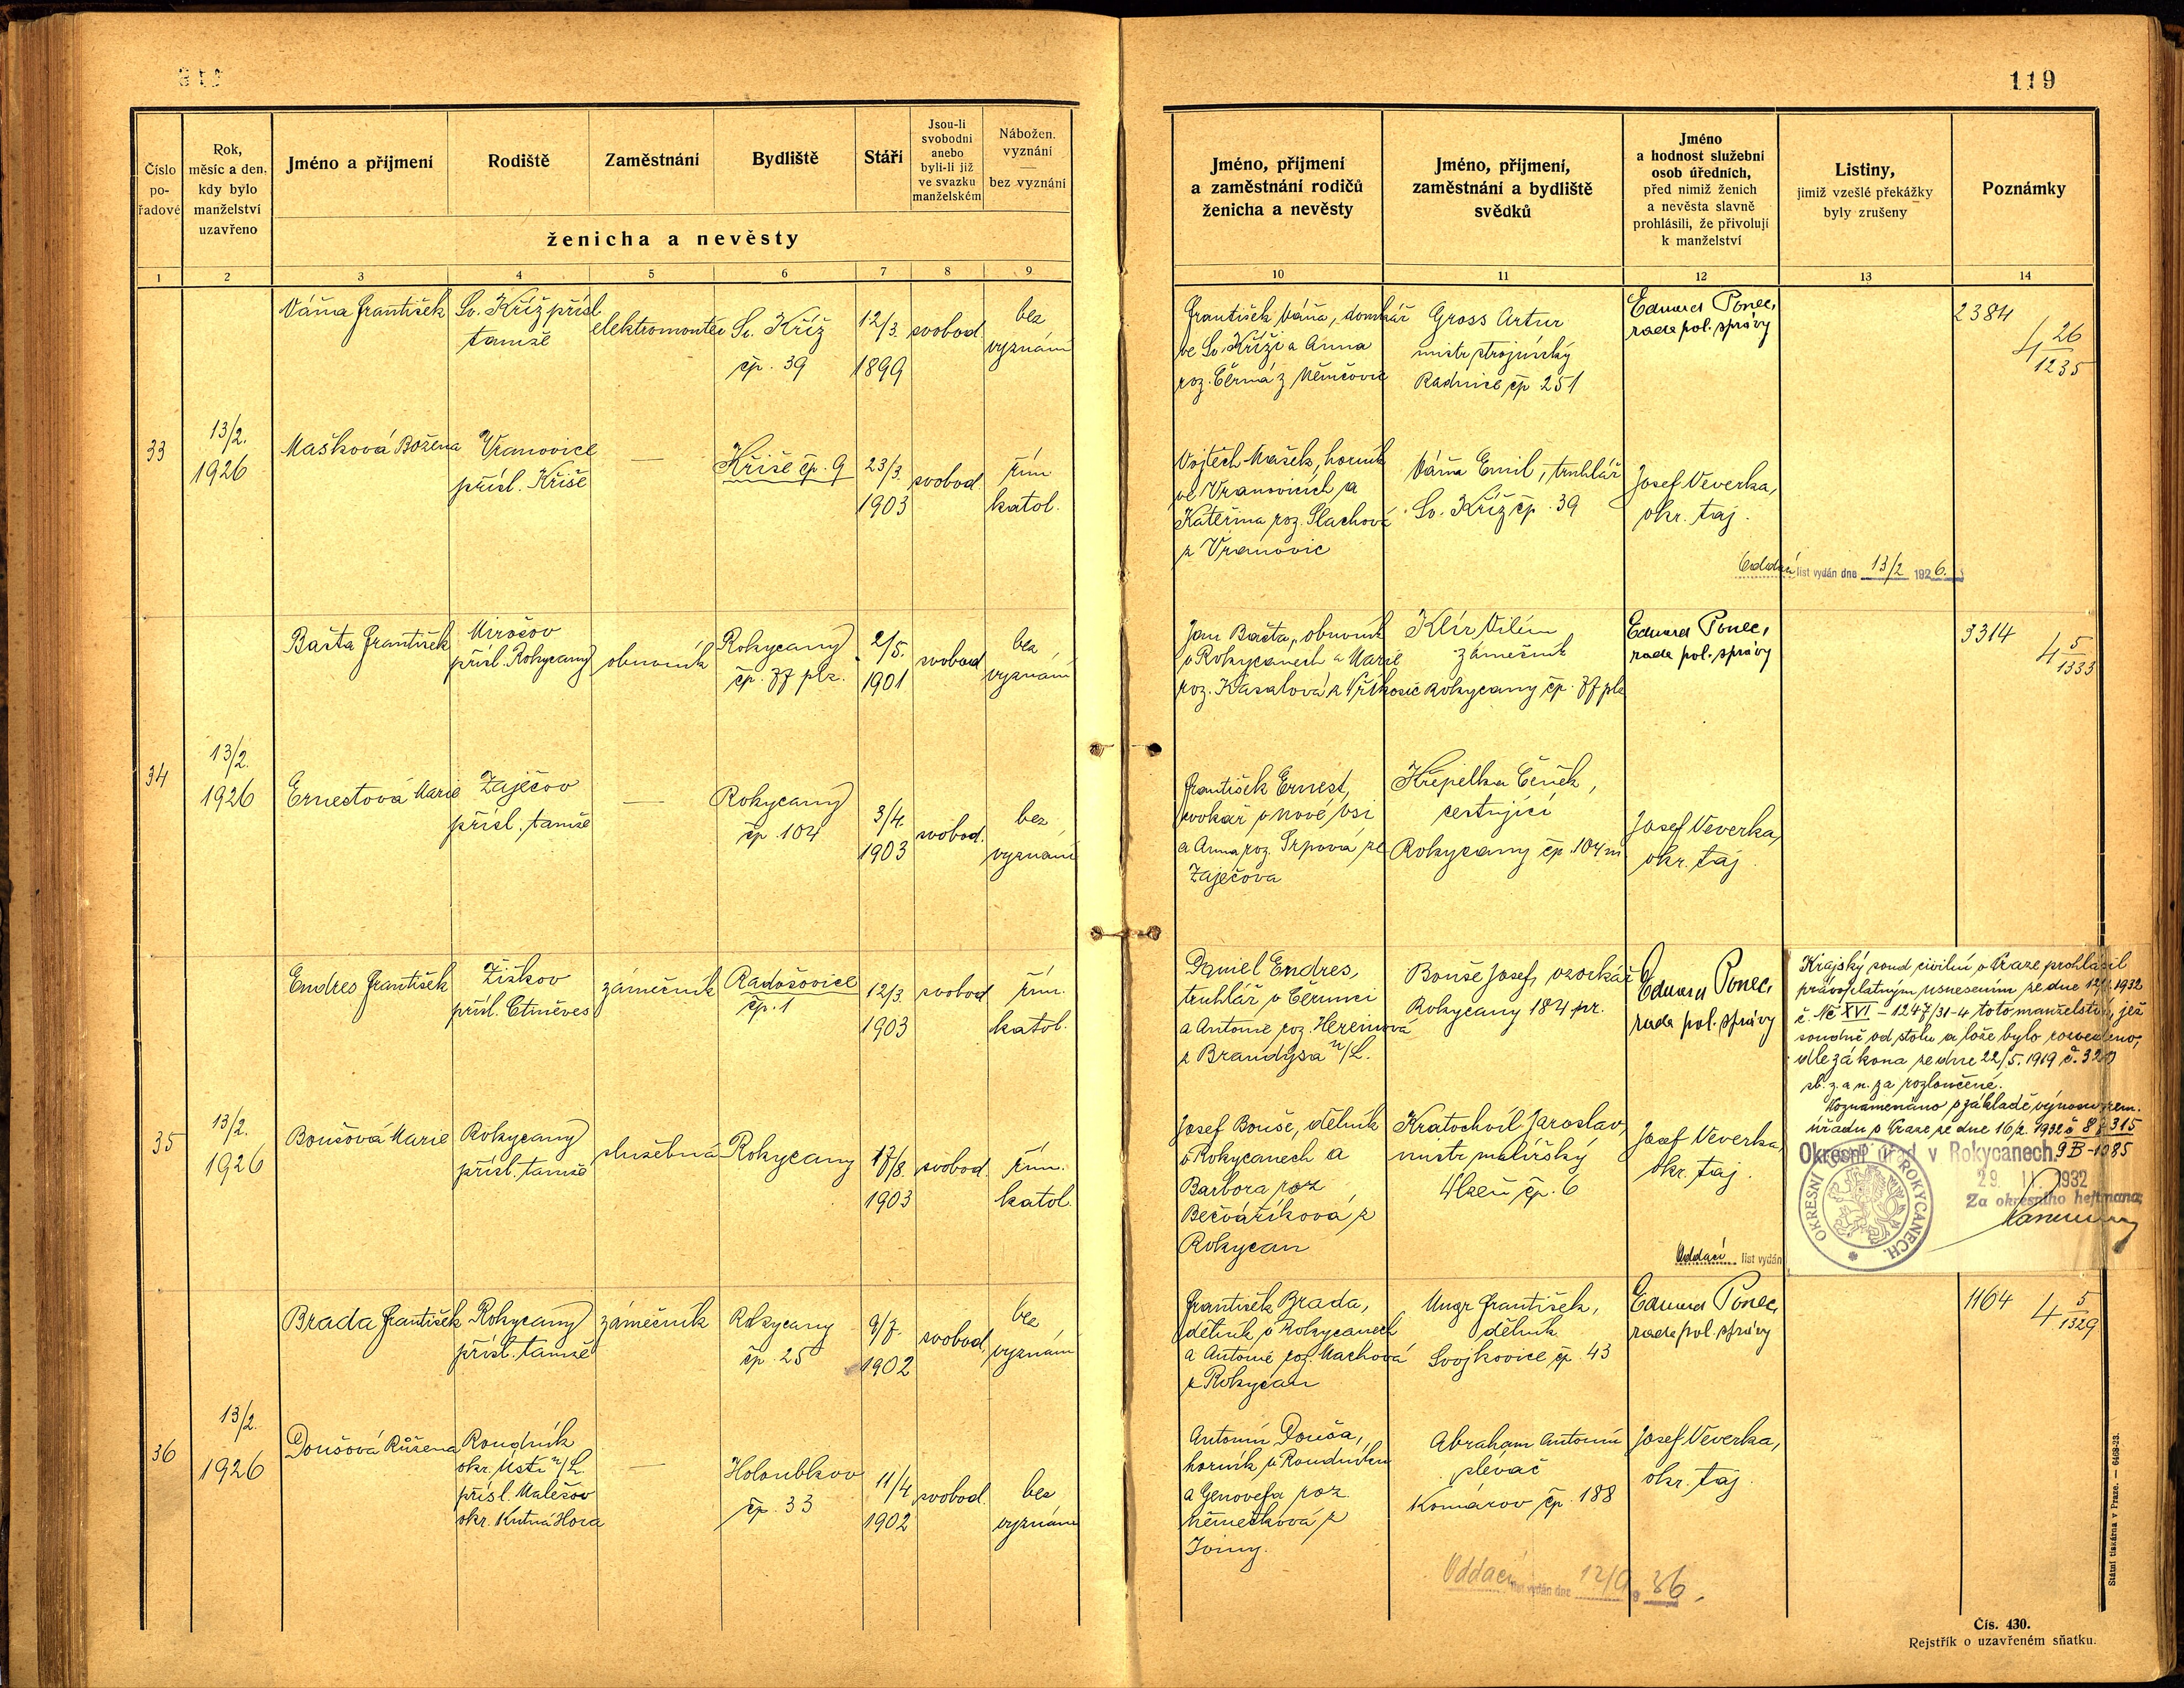 119
Číslo
po-
řadové
Rok,
měsíc a den,
kdy bylo
manželství
uzavřeno
Jméno a příjmení
Rodiště
Zaměstnání
Bydliště
Stáří
Jsou-li
svobodni
anebo
byli-li již
ve svazku
manželském
Nábožen.
vyznání
bez vyznání
ženicha a nevěsty
1 2 3 4 5 6 7 8 9
Jméno, příjmení
a zaměstnání rodičů
ženicha a nevěsty
Jméno, příjmení,
zaměstnání a bydliště
svědků
Jméno
a hodnost služební
osob úředních,
před nimiž ženich
a nevěsta slavně
prohlásili, že přivolují
k manželství
Listiny,
jimiž vzešlé překážky
byly zrušeny
Poznámky
10 11 12 13 14
33
13/2.
1926
Váňa František
Sv. Kříž přísl.
tamže
elektromontér
Sv. Kříž
čp. 39
12/3.
1899
svobod.
bez
vyznání
Mašková Božena
Vranovice
přísl. Kříše
—
Kříše čp. 9
23/3.
1903
svobod
řím.
katol.
František Váňa, domkář
ve Sv. Kříži a Anna
roz. Černá z Němčovic
Gross Artur
mistr strojnický
Radnice čp 251
Eduard Ponec,
rada pol. správy
2384
4 26
1235
Vojtěch Mašek, horník
ve Vranovicích a
Kateřina roz. Slachová
z Vranovic
Váňa Emil, truhlář
Sv. Kříž čp. 39
Josef Veverka,
okr. taj.
Oddací list vydán dne 13/2 1926.
34
13/2.
1926
Bašta František
Mirošov
přísl. Rokycany
obuvník
Rokycany
čp. 77 plz.
2/5.
1901
svobod
bez
vyznání
Ernestová Marie
Zaječov
přísl. tamže
—
Rokycany
čp. 104
3/4.
1903
svobod.
bez
vyznání
Jan Bašta, obuvník
v Rokycanech a Marie
roz. Kasalová z Vískosic
Klír Vilém
zámečník
Rokycany čp. 77 plz
Eduard Ponec,
rada pol. správy
3314
4 5
1333
František Ernest,
cvokař v Nové Vsi
a Anna roz. Srpová ze
Zaječova
Křepelka Čeněk,
cestující
Rokycany čp. 104 m
Josef Veverka,
okr. taj.
35
13/2.
1926
Endres František
Žižkov
přísl. Ctiněves
zámečník
Radošovice
čp. 1
12/3.
1903
svobod
řím.
katol.
Boušová Marie
Rokycany
přísl. tamže
služebná
Rokycany
17/8.
1903
svobod.
řím.
katol.
Daniel Endres,
truhlář v Černuci
a Antonie roz. Hereinová
z Brandýsa n/L.
Bouše Josef, vzorkář
Rokycany 184 pr.
Eduard Ponec,
rada pol. správy
Josef Bouše, dělník
v Rokycanech a
Barbora roz
Bečváříková z
Rokycan
Kratochvíl Jaroslav,
mistr malířský
Plzeň čp. 6
Josef Veverka,
okr. taj.
Oddací list vydán
Krajský soud civilní v Praze prohlásil
právoplatným usnesením ze dne 1932
č. Nc XVI – 1247/31-4 toto manželství, jež
soudně od stolu a lože bylo rozvedeno,
dle zákona ze dne 22/5. 1919 č. 320
sb. z. a n. za rozloučené.
Poznamenáno v základě výnosu zem.
úřadu v Praze ze dne 16/2. 1932 č 315
9B-1085
Okresní úřad v Rokycanech.
29. II. 1932
Za okresního hejtmana:
OKRESNÍ ÚŘAD V ROKYCANECH.
36
13/2.
1926
Brada František
Rokycany
přísl. tamže
zámečník
Rokycany
čp. 25
9/7.
1902
svobod.
bez
vyznání
Doušová Růžena
Roudník
okr. Ústí n/L.
přísl. Malešov
okr. Kutná Hora
—
Holoubkov
čp. 33
11/4
1902
svobod.
bez
vyznání
František Brada,
dělník v Rokycanech
a Antonie roz. Machová
z Rokycan
Ungr František,
dělník
Svojkovice čp. 43
Eduard Ponec,
rada pol. správy
1164
4 5
1329
Antonín Douša,
horník v Roudníku
a Genovefa roz.
Němečková z
Jviny.
Abraham Antonín
slévač
Komárov čp. 188
Josef Veverka,
okr. taj.
Oddací list vydán dne 12/9 36.
Státní tiskárna v Praze. — 6468-23.
Čís. 430.
Rejstřík o uzavřeném sňatku.